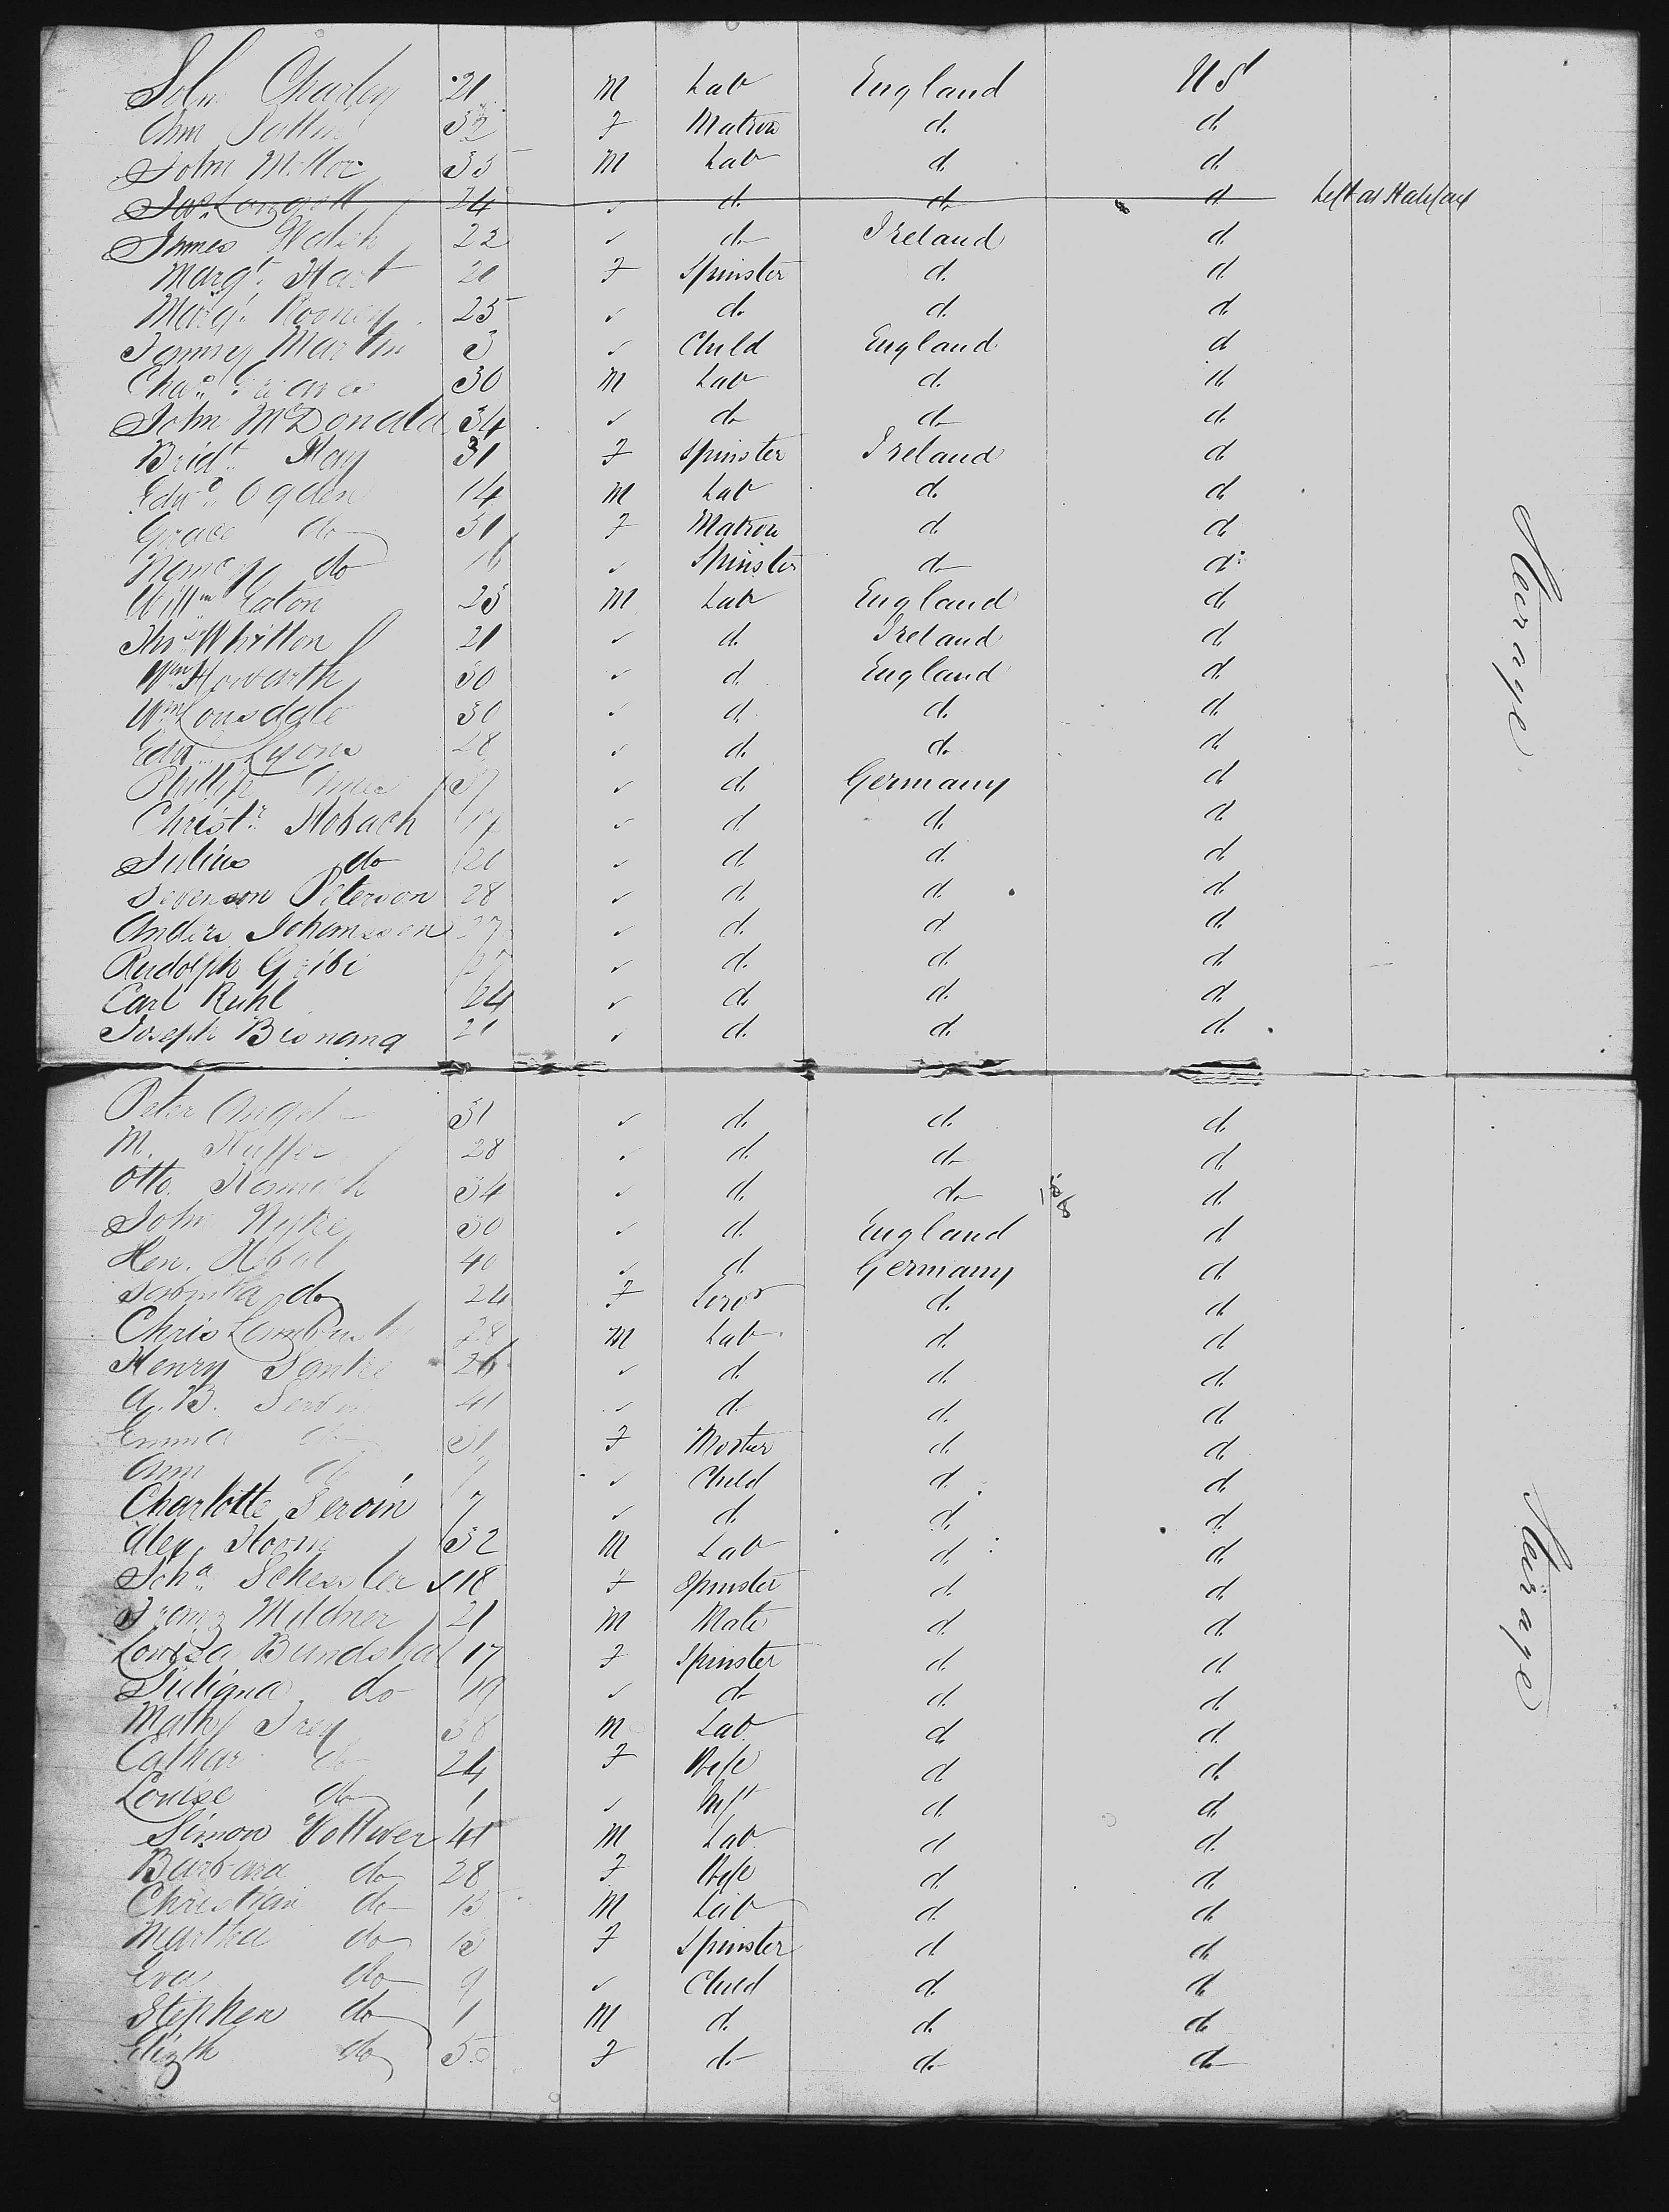 Charley 21 M Lab England US
Ann 32 F Matron d d
John 35 M Lab d d
24 ✓ d d d Left at Halifax
James Walsh 22 ✓ d Ireland d
Margt. Hart 20 F Spinster d d
Margt. Rooney 25 ✓ d d d
Fanny Martin 3 ✓ Child England d
Chas. 30 M Lab d d
John McDonald 34 ✓ d d d
Bridt. May 31 F Spinster Ireland d
Edwd. Ogden 14 M Lab d d
Grace do 31 F Matron d d
Nancy do 16 ✓ Spinster d d
Willm Eaton 25 M Lab England d
Thos Whitton 21 ✓ d Ireland d
Wm Howarth 30 ✓ d England d
Wm Lonsdale 30 ✓ d d d
Edwd. Lyons 28 ✓ d d d
Phillip 37 ✓ d Germany d
Christr. Hobach ✓ d d d
Julius do 20 ✓ d d d
Sevenson Peterson 28 ✓ d d d
Anders Johanssen 27 ✓ d d d
Rudolph Gribi ✓ d d d
Carl Ruhl 24 ✓ d d d
Joseph 21 ✓ d d d
Peter Angel 31 ✓ d d d
M. 28 ✓ d d d
Otto 34 ✓ d d d
John 30 ✓ d England d
Hen. Hebal 40 ✓ d Germany d
do 24 F d d
Chris 28 M Lab d d
Henry 26 ✓ d d d
A. B. 41 ✓ d d d
Emma do 31 F Mother d d
Ann do ✓ Child d d
Charlotte Servin 7 ✓ d d d
Alex. 32 M Lab d d
Joha. Schessler 18 F Spinster d d
Franz Mildner 21 M Male d d
Louisa 17 F Spinster d d
Juliana do 19 ✓ d d d
Math Frey 38 M Lab d d
Cathar do 24 F Wife d d
Louise do 1 ✓ Inft d d
Simon Vollwer 41 M Lab d d
Barbara do 28 F Wife d d
Christian do 15 M Lab d d
Martha do 13 F Spinster d d
Eva do 9 ✓ Child d d
Stephen do 1 M d d d
Elizth do 5 F d d d
Steerage
Steerage